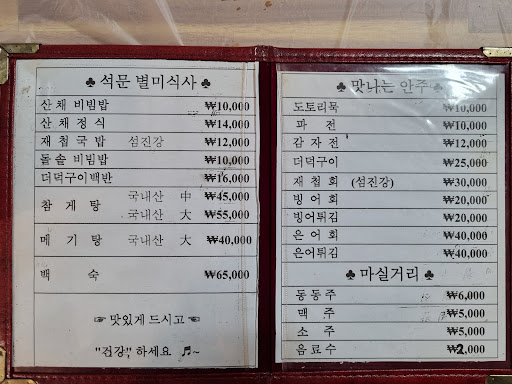 ♣ 석문 별미식사 ♣
산채 비빔밥 ₩10,000
산채정식 ₩14,000
재첩국밥 섬진강 ₩12,000
돌솥 비빔밥 ₩10,000
더덕구이백반 ₩16,000
참게탕 국내산 中 ₩45,000
국내산 大 ₩55,000
메기탕 국내산 大 ₩40,000
백숙 ₩65,000
☞ 맛있게 드시고 ☜
"건강" 하세요 ♬~
♣ 맛나는 안주 ♣
도토리묵 ₩10,000
파전 ₩10,000
감자전 ₩12,000
더덕구이 ₩25,000
재첩회 (섬진강) ₩30,000
빙어회 ₩20,000
빙어튀김 ₩20,000
은어회 ₩40,000
은어튀김 ₩40,000
♣ 마실거리 ♣
동동주 ₩6,000
맥주 ₩5,000
소주 ₩5,000
음료수 ₩2,000